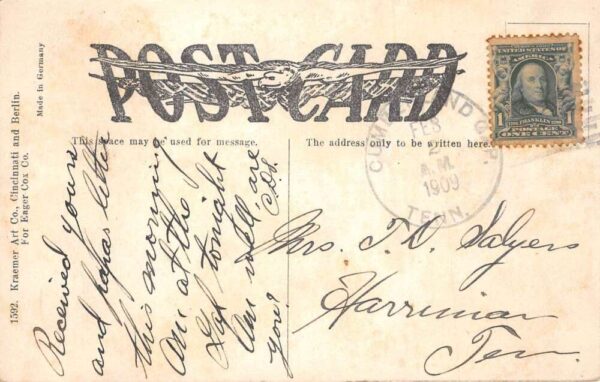 POST CARD
This space may be used for message.
The address only to be written here.
1592. Kraemer Art Co., Cincinnati and Berlin.
For Eager Cox Co.
Made in Germany
CUMBERLAND GAP
FEB
2
A.M.
1909
TENN.
UNITED STATES OF
AMERICA
FRANKLIN
1 POSTAGE 1
ONE CENT
Received yours
and papas letter
this morning
Am at the
Gap tonight
Am well are
you?
Mrs. T. Salyers
Harriman
Ten.